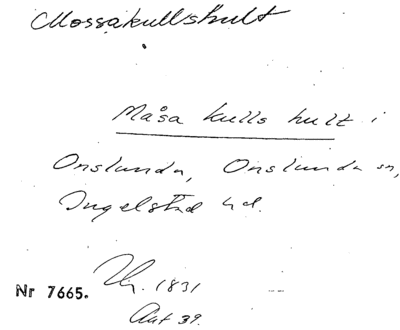 Mossakullshult
Måsa kulls hult i
Onslunda, Onslunda sn,
Ingelstad hd.
Nr 7665. 1831
Akt 39.